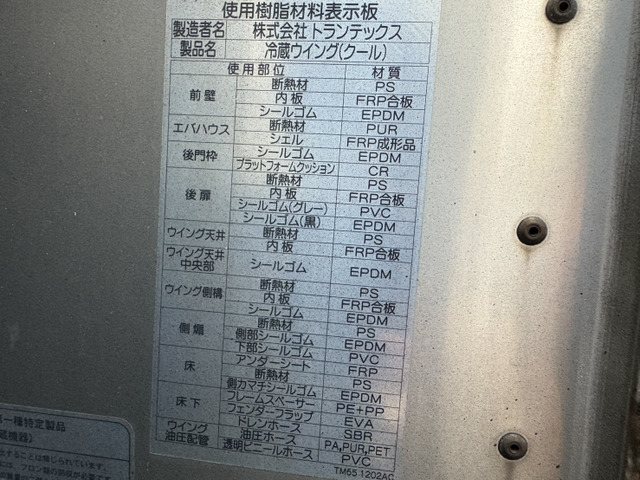 使用樹脂材料表示板
製造者名 株式会社トランテックス
製品名 冷蔵ウイング(クール)
使用部位 材質
前壁 断熱材 PS
内板 FRP合板
シールゴム EPDM
エバハウス 断熱材 PUR
シェル FRP成形品
後門枠 シールゴム EPDM
プラットフォームクッション CR
後扉 断熱材 PS
内板 FRP合板
シールゴム(グレー) PVC
シールゴム(黒) EPDM
ウイング天井 断熱材 PS
内板 FRP合板
ウイング天井中央部 シールゴム EPDM
ウイング側構 断熱材 PS
内板 FRP合板
シールゴム EPDM
側煽 断熱材 PS
側部シールゴム EPDM
下部シールゴム PVC
床 アンダーシート FRP
断熱材 PS
床下 側カマチシールゴム EPDM
フレームスペーサー PE+PP
フェンダーフラップ EVA
ドレンホース SBR
ウイング油圧配管 油圧ホース PA,PUR,PET
透明ビニールホース PVC
TM65 1202AC
一種特定製品
蔵機器)
ことは禁じられています。
は、フロン類の回収が必要です